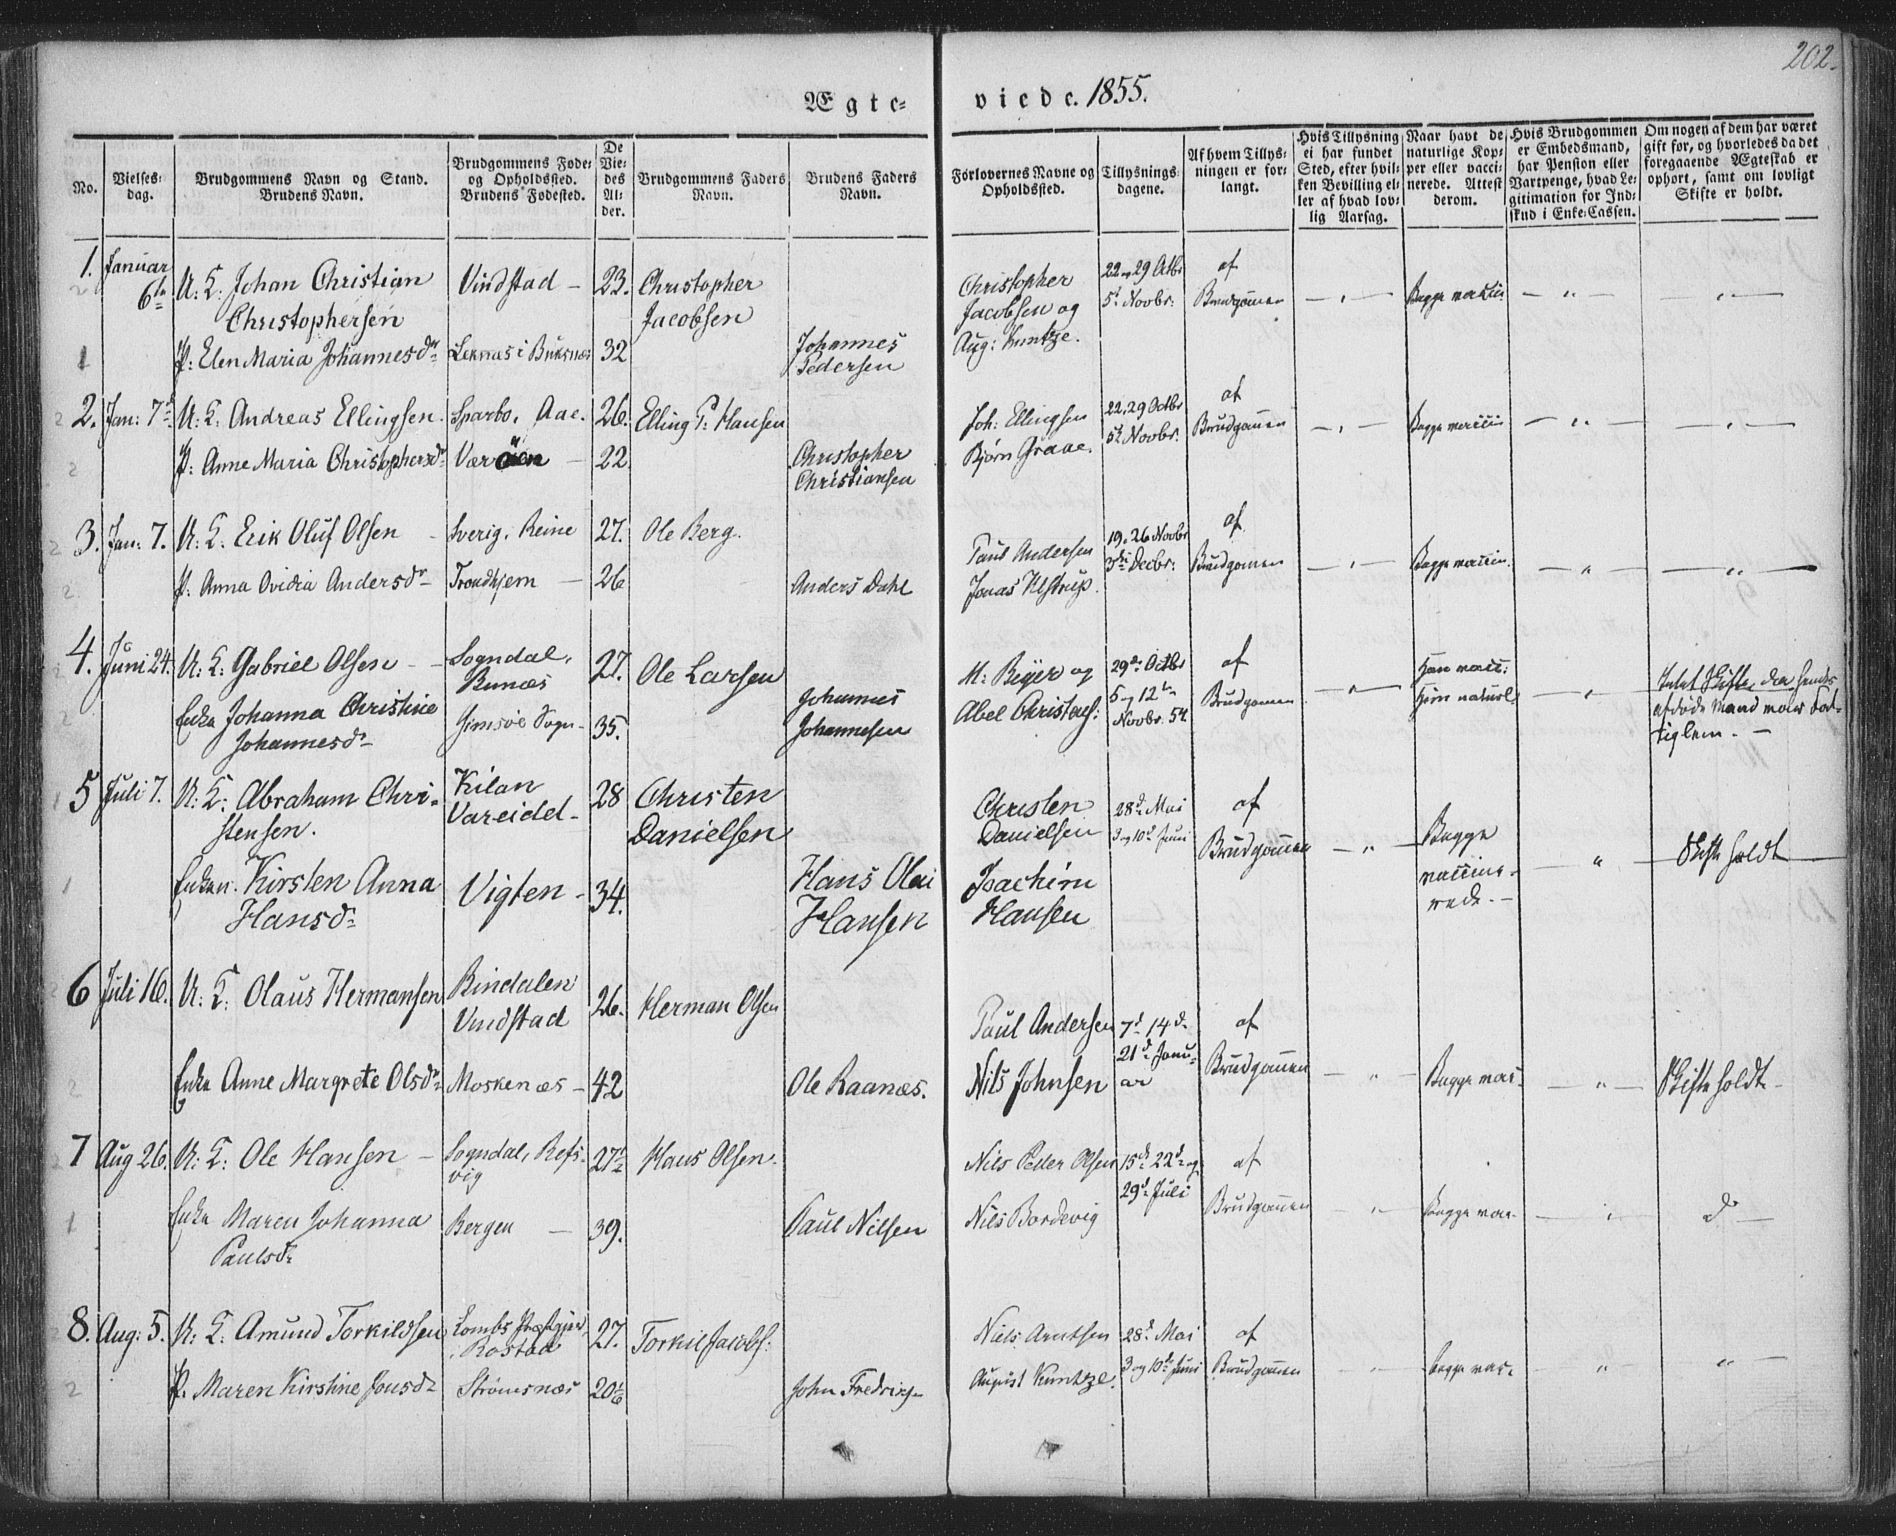 202.
Ægte-
viede. 1855.
No.
Vielses-
dag.
Brudgommens Navn og Stand.
Brudens Navn.
Brudgommens Føde-
og Opholdssted.
Brudens Fødested.
De
Vie-
des
Al-
der.
Brudgommens Faders
Navn.
Brudens Faders
Navn.
Forlovernes Navne og
Opholdssted.
Tillysnings-
dagene.
Af hvem Tillys-
ningen er for-
langt.
Hvis Tillysning
ei har fundet
Sted, efter hvil-
ken Bevilling el-
ler af hvad lov-
lig Aarsag.
Naar havt de
naturlige Kop-
per eller vacci-
nerede. Attest
derom.
Hvis Brudgommen
er Embedsmand,
har Pension eller
Vartpenge, hvad Le-
gitimation for Ind-
skud i Enke-Cassen.
Om nogen af dem har været
gift før, og hvorledes da det
foregaaende Ægteskab er
ophørt, samt om lovligt
Skifte er holdt.
1. Januar
6te
U: K: Johan Christian
Christophersen
Vindstad —
23.
Christopher
Jacobsen
Christopher
Jacobsen og
Aug: Kuntze.
22 og 29 Octbr
5t Novbr:
af
Brudgomen
Begge vaccin
1
P: Elen Maria Johannesdr
Leknæs i Buksnæs
32
Johannes
Pedersen
2. Jan: 7d
U: K: Andreas Ellingsen
Sparbo, Aae.
26.
Elling P: Hansen
Joh: Ellingsen
Bjørn Graae.
22, 29 Octbr
5t Novbr:
af
Brudgomen
Begge vaccin
2
P: Anne Maria Christophersdr
Værøien —
22
Christopher
Christiansen
3. Jan: 7.
U: K: Erik Oluf Olsen
Sverig, Reine
27.
Ole Berg.
Paul Andersen
Jonas Klstrup.
19. 26 Novbr
3die Decbr:
af
Brudgomen
Begge vaccin.
2
P. Anna Ovidia Andersdr
Trondhjem —
26
Anders Dahl
4. Juni 24.
U: K: Gabriel Olsen
Sogndal,
Bunæs
27.
Ole Larsen
M: Beyer og
Abel Christens:
29de Octbr
5 og 12te
Novbr. 54.
af
Brudgomen
Han vacc:
Hun naturl
Intet Skifte, da hendes
afdøde Mand var Fat-
tiglem. —
Enke Johanna Christine
Johannesdr
Gimsøe Sogn
35.
Johannes
Johannesen
5 Juli 7.
U: K: Abraham Chri-
stensen.
Kilan
Vareidet
28
Christen
Danielsen
Christen
Danielsen
Joachim
Hansen
28d Mai
3 og 10d Juni
af
Brudgomen
Begge
vaccine-
rede. —
Skifte holdt
1
Enken. Kirsten Anna
Hansdr
Vigten -
34.
Hans Olai
Hansen
6 Juli 16.
U: K: Olaus Hermansen
Bindalen
Vindstad
26.
Herman Olsen
Paul Andersen
Nils Johnsen
7d 14d
21d Janu-
ar
af
Brudgomen
Begge vac.
Skifte holdt
2
Enke Anne Margrete Olsdr
Moskenæs —
42
Ole Raanæs.
7 Aug 26.
U: K: Ole Hansen —
Sogndal, Refs-
vig
27½
Hans Olsen.
Nils Peder Olsen
Nils Bordevig
15d 22d og
29d Juli
af
Brudgomen
Begge vac.
d —
1
Enke Maren Johanna
Paulsdr
Bergen —
39.
Paul Nilsen
8. Aug: 5.
U: K: Amund Torkildsen
Lombs Præstgjeld,
Rostad
27.
Torkil Jacobs:
Niels Arntsen
August Kuntze.
28d Mai
3 og 10de Juni
af
Brudgomen
Begge vac.
2
P. Maren Kirstine Jonsdr
Strømsnæs
20⅙
John Fredriks